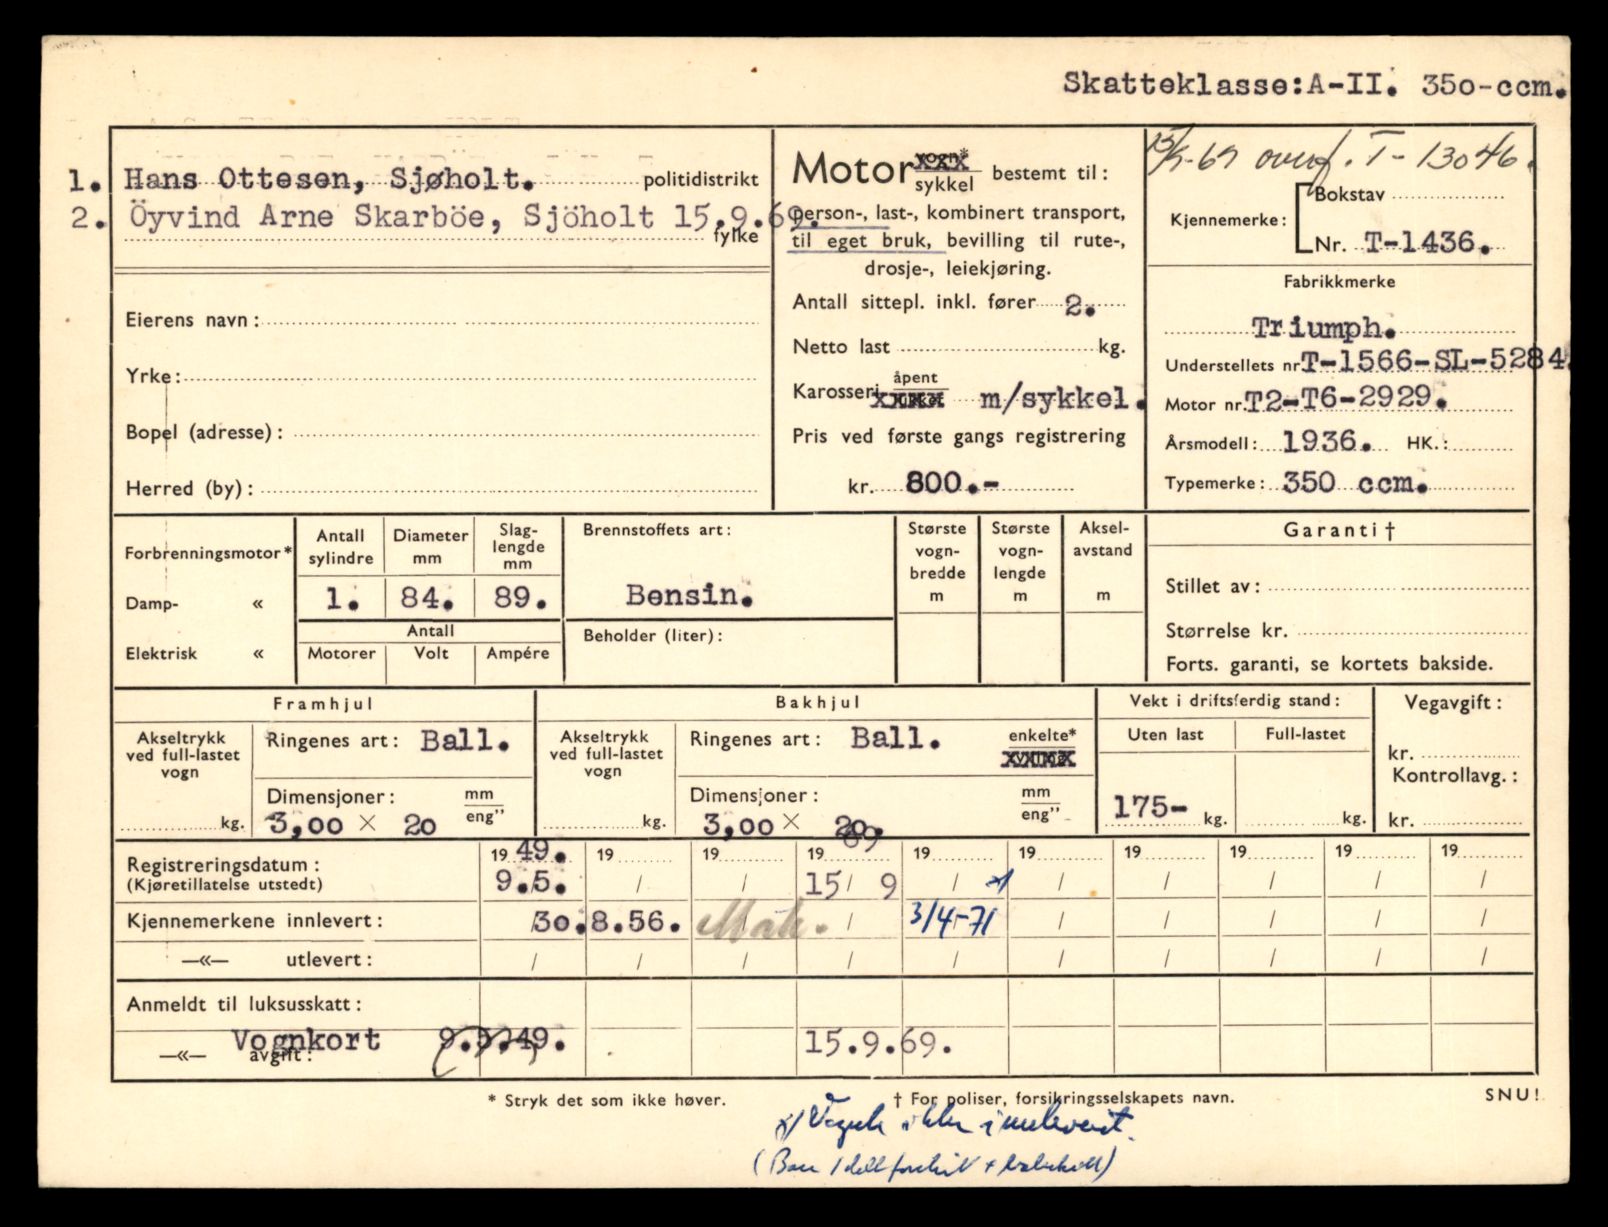 Skatteklasse: A-II. 350-ccm.
1. Hans Ottesen, Sjøholt. politidistrikt
2. Öyvind Arne Skarböe, Sjöholt 15.9.69. fylke
Eierens navn:
Yrke:
Bopel (adresse):
Herred (by):
Motor vogn* sykkel bestemt til:
person-, last-, kombinert transport,
til eget bruk, bevilling til rute-,
drosje-, leiekjøring.
Antall sittepl. inkl. fører 2.
Netto last kg.
Karosseri åpent lukket m/sykkel.
Pris ved første gangs registrering
kr. 800.-
15/9-69 overf. T-13046.
Kjennemerke: Bokstav
Nr. T-1436.
Fabrikkmerke
Triumph.
Understellets nr. T-1566-SL-5284.
Motor nr. T2-T6-2929.
Årsmodell: 1936. HK.:
Typemerke: 350 ccm.
Forbrenningsmotor*
Damp- «
Elektrisk «
Antall sylindre
Diameter mm
Slag-lengde mm
1. 84. 89.
Antall
Motorer Volt Ampére
Brennstoffets art:
Bensin.
Beholder (liter):
Største vogn-bredde m
Største vogn-lengde m
Aksel-avstand m
Garanti †
Stillet av:
Størrelse kr.
Forts. garanti, se kortets bakside.
Framhjul
Akseltrykk ved full-lastet vogn
kg.
Ringenes art: Ball.
Dimensjoner: mm eng”
3,00 × 20
Bakhjul
Akseltrykk ved full-lastet vogn
kg.
Ringenes art: Ball. enkelte*
Dimensjoner: mm eng”
3,00 × 20.
Vekt i driftsferdig stand:
Uten last Full-lastet
175- kg. kg.
Vegavgift:
kr.
Kontrollavg.:
kr.
Registreringsdatum: 19 49. 19 19 19 69 19 19 19 19 19 19
(Kjøretillatelse utstedt) 9./5. / / 15/ 9 / x) / / / / /
Kjennemerkene innlevert: 30.8.56. / 3/4-71 / / / / /
—«— utlevert: / / / / / / / / / /
Anmeldt til luksusskatt:
Vognkort 9.5.49. 15.9.69.
—«— avgift:
* Stryk det som ikke høver.
† For poliser, forsikringsselskapets navn.
SNU!
x) Vognk ikke innlevert.